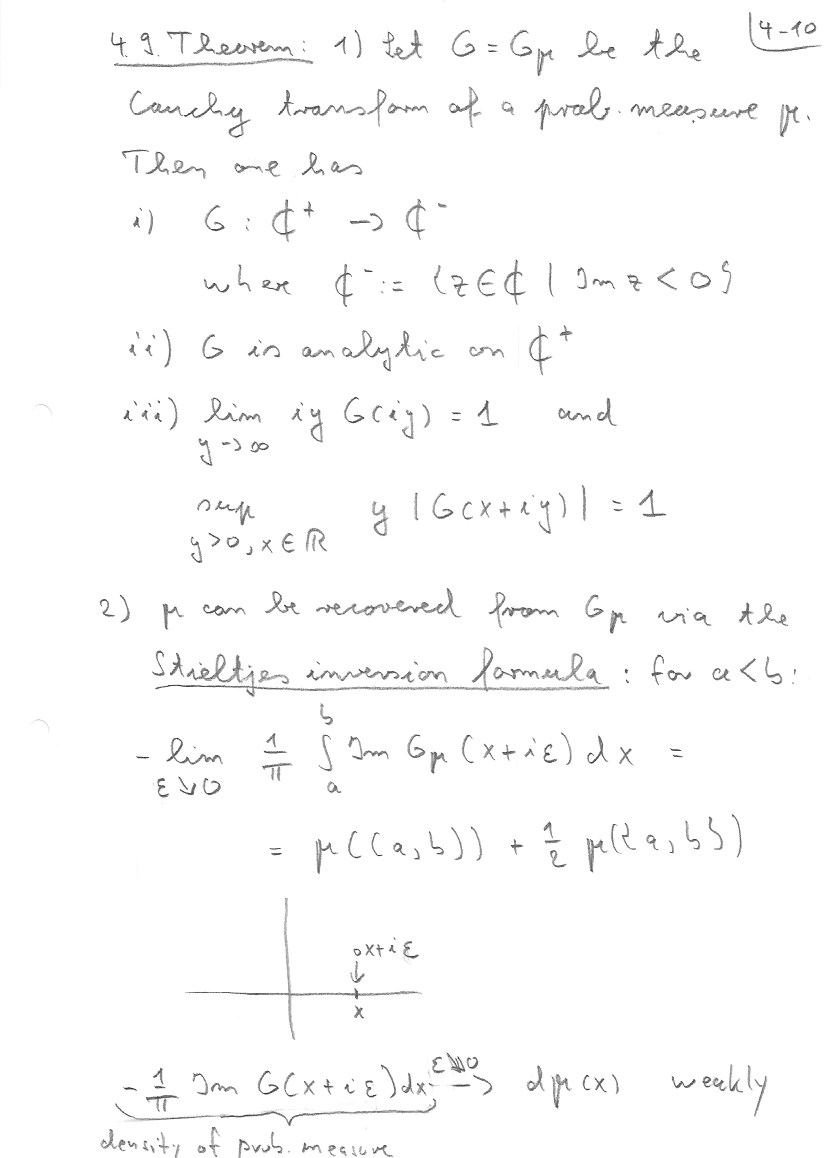 4.9. Theorem: 1) Let G = Gμ be the
4-10
Cauchy transform of a prob. measure μ.
Then one has
i) G : ℂ⁺ → ℂ⁻
where ℂ⁻ := {z ∈ ℂ | Im z < 0}
ii) G is analytic on ℂ⁺
iii) lim iy G(iy) = 1 and
y → ∞
sup y |G(x+iy)| = 1
y>0, x ∈ ℝ
2) μ can be recovered from Gμ via the
Stieltjes inversion formula : for a < b :
- lim 1/π ∫ₐᵇ Im Gμ (x+iε) dx =
ε ↘ 0
= μ((a,b)) + 1/2 μ({a,b})
x+iε
x
- 1/π Im G(x+iε) dx →^{ε↘0} dμ(x) weakly
density of prob. measure